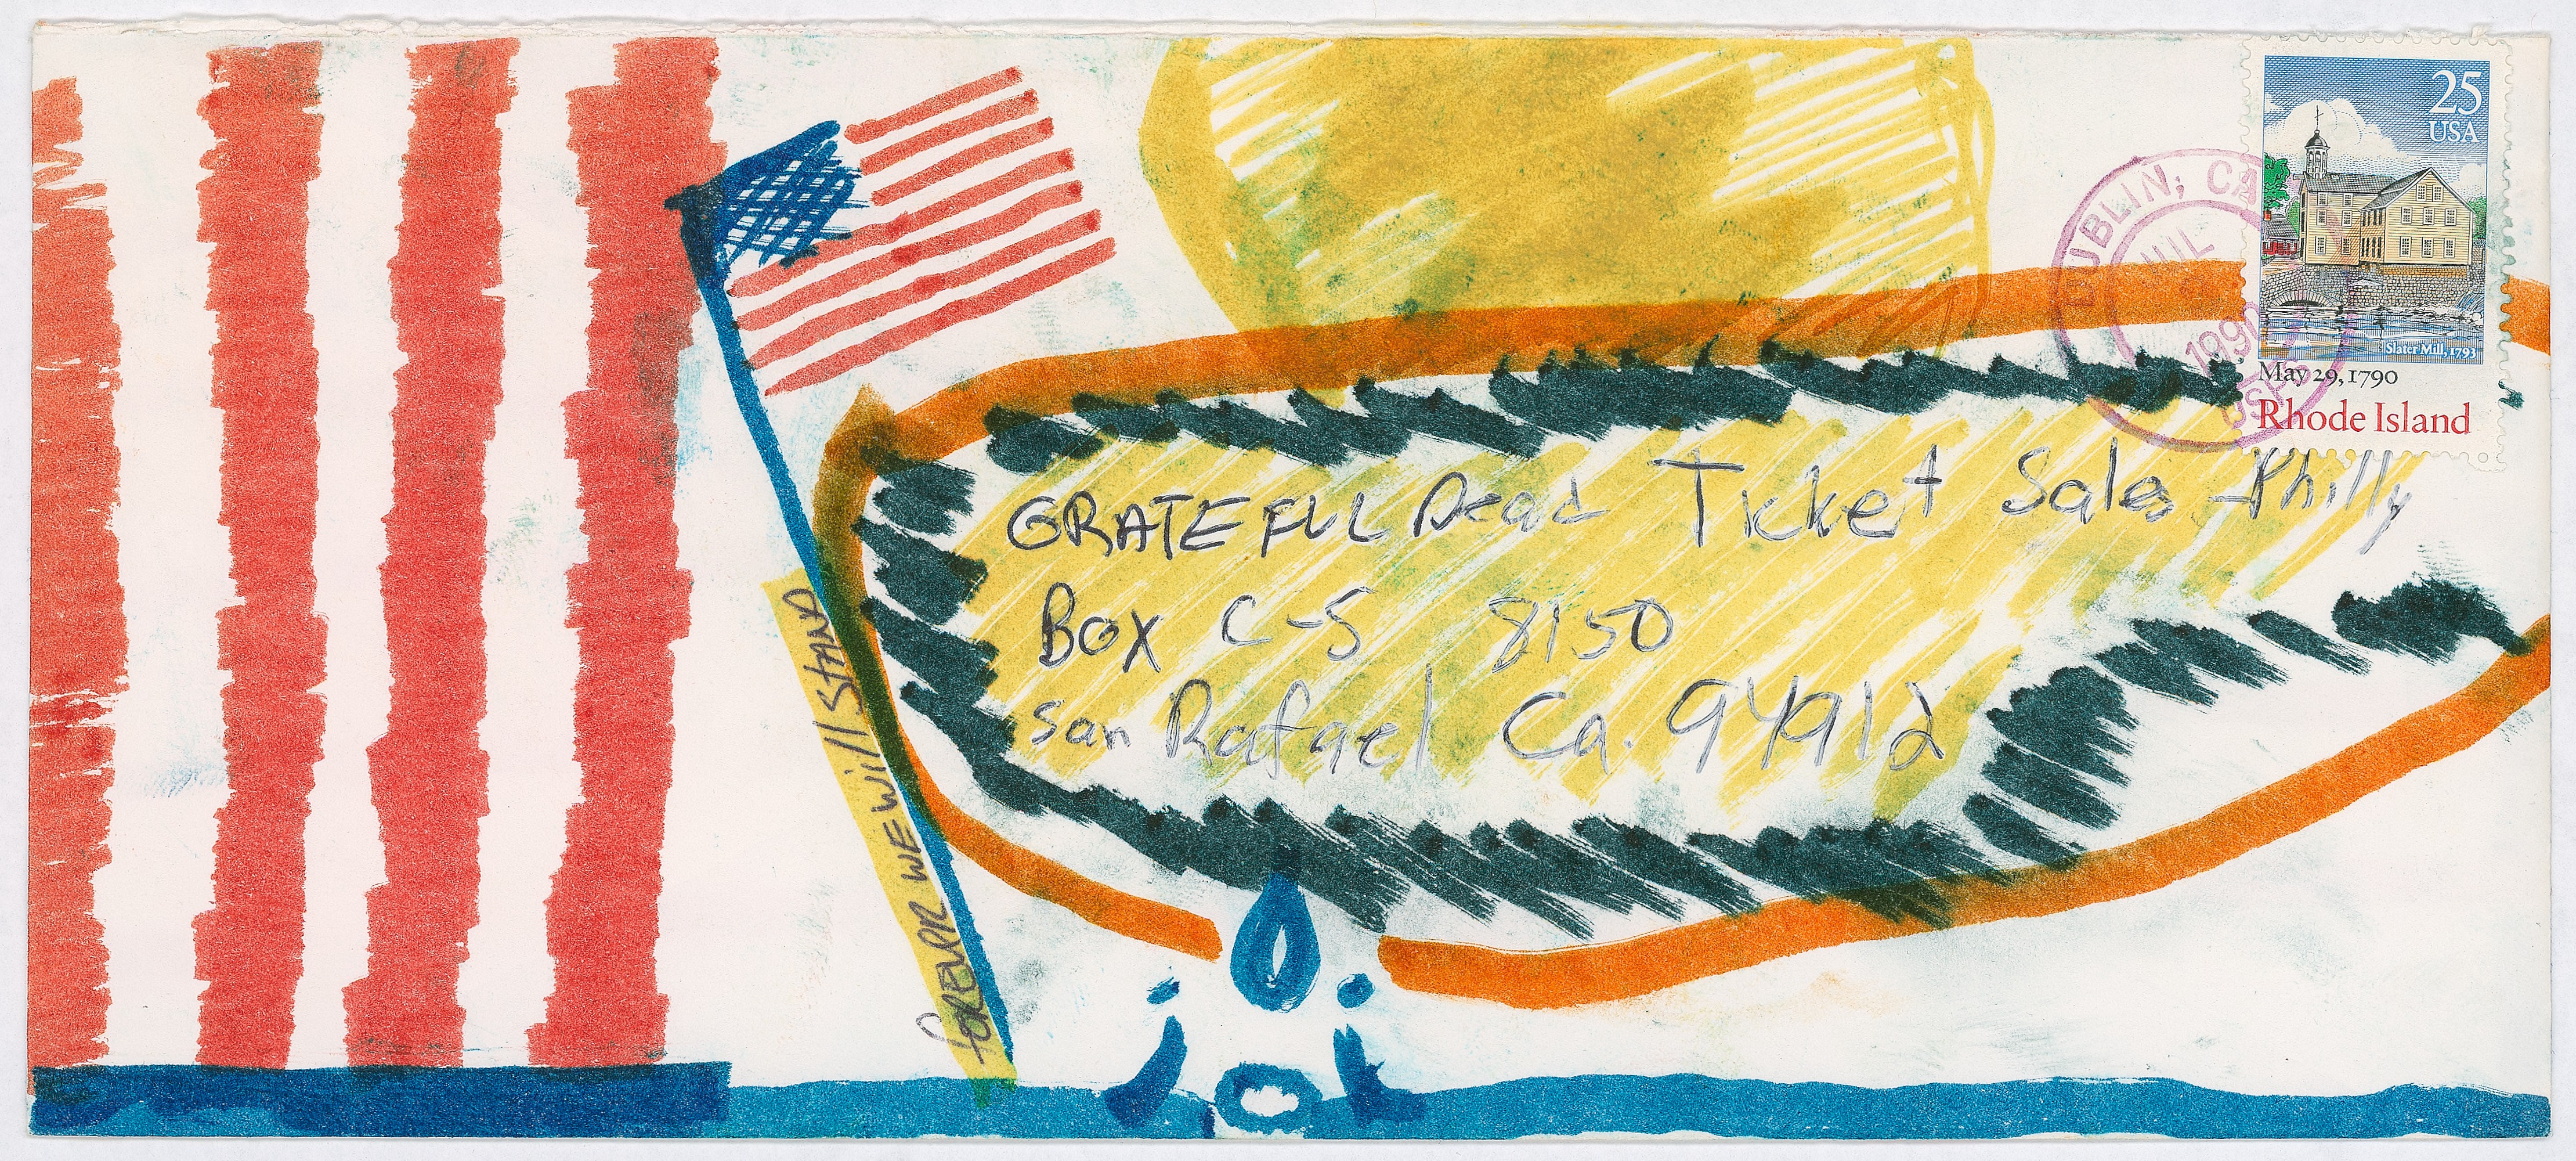 25
USA
Slater Mill, 1793
May 29, 1790
Rhode Island
DUBLIN, CA
JUL
1990
USPS
GRATEFUL Dead Ticket Sales Philly
Box C-S 8150
San Rafael Ca. 94912
fOREVRR WE Will STAND